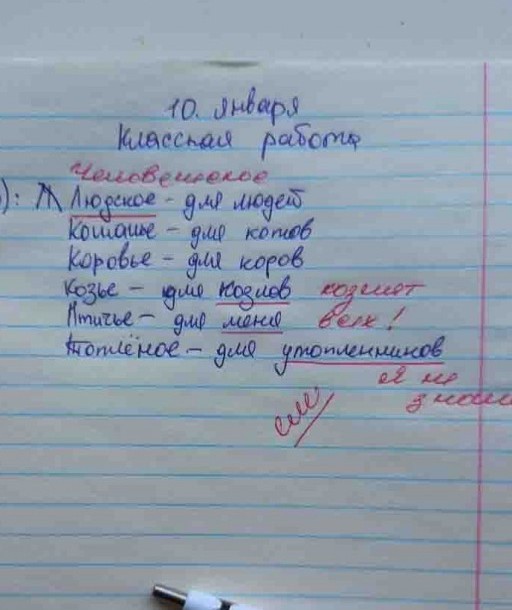 10. января
Классная работа
Человеческое
): Людское - для людей
Кошачье - для котов
Коровье - для коров
Козье - для козлов козлят
Птичье - для меня всех!
Топлёное - для утопленников
Я не
знаю
см